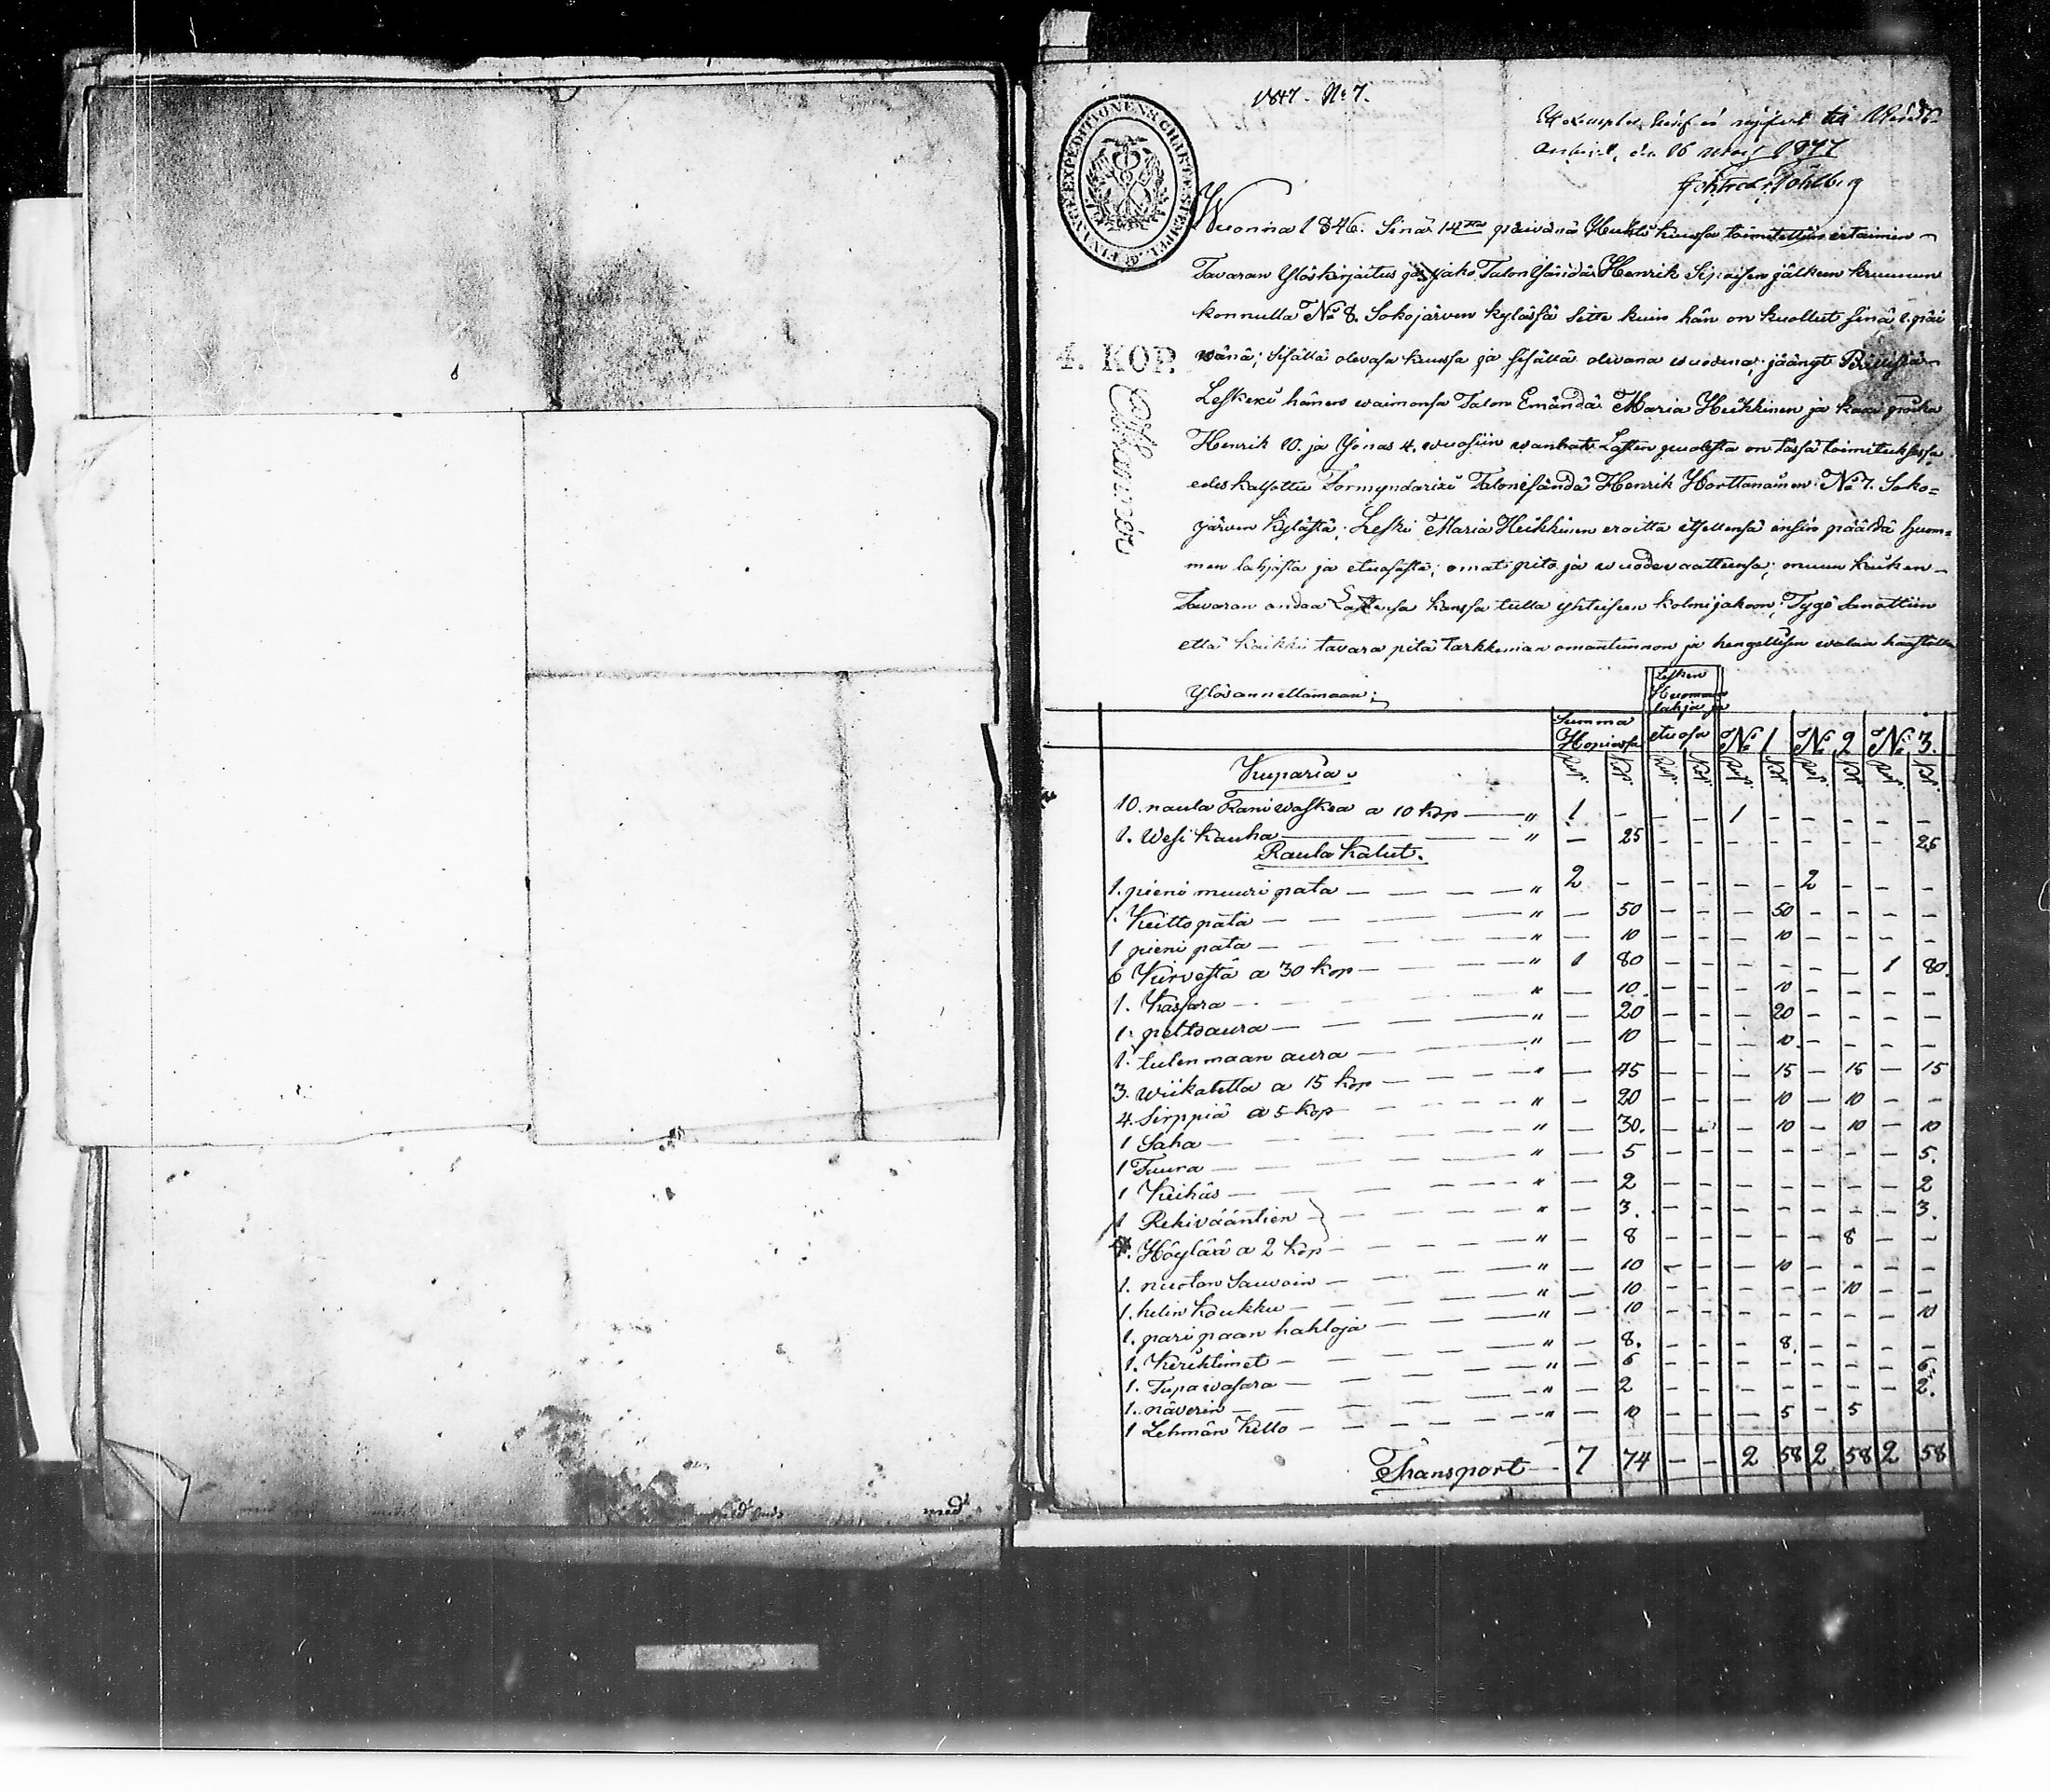 1847. No 7.
FINANCE EXPEDITIONENS CHARTÆ STEMPEL
den 16 1847
Wuonna 1846. Sinä 14ta päivänä Huhti kuussa toimitettiin irtaimen
Tavaran Ylöskirjoitus ja jako Talon Isändä Henrik Sipaisen jälkeen kruunun
konnulla No 8. Sokojärven kylässä sitte kuin hän on kuollut sinä 2. päi
wänä; sisällä olevasa kuussa ja sisällä olevana wuodena; jäängt
Leskexi hänen waimonsa Talon Emändä Maria Heikkinen ja kaxi poika
Henrik 10. ja Jonas 4. wuosiin wanhat Lasten puolesta on tässä toimituksessa
edeskatsottu Formyndarixi Talonisändä Henrik Horttanainen No 7. Soko=
järven kylästä; Leski Maria Heikkinen eroitta itsellensä ensin päältä huom=
men lahjasta ja etuosasta; omat pito ja wuodevaattensa; muun kaiken
Tavaran andaa Lastensa kanssa tulla yhteiseen kolmijakoon; Tygö sanottiin
että kaikki tavara pitä tarkkeman omantunnon ja hengellisen walan
Ylösannettamaan;
4. KOP.
Summa Hopiassa Lesken Huomen lahja ja etuosa No 1 No 2 No 3.
Rup. Kop. Rup. Kop. Rup. Kop. Rup. Kop. Rup. Kop.
Kuparia
10. naula Raniwaskea a 10 kop — " 1 - - - 1 - - - - -
1. Wesi kauha — " — 25 - - - - - - - 25
Rauta kalut.
1. pieni muuri pata — " 2 - - - - - 2 - - -
1. Keitto pata — " — 50 - - - 50 - - - -
1 pieni pata — " — 10 - - - 10 - - - -
6 Kirvestä a 30 kop — " 1 80 - - - - - - 1 80.
1. Kassara — " — 10. - - - 10 - - - -
1. peltoaura — " — 20 - - - 20 - - - -
1. tulenmaan aura — " — 10 - - - 10. - - - -
3. wiikatetta a 15 kop — " — 45 - - - 15 - 15 - 15
4. Sirppiä a 5 kop — " - 20 - - - 10 - 10 - -
1 Saha — " — 30. - - - 10 - 10 - 10
1 Tuura — " — 5 - - - - - - - 5.
1 Keihäs — " — 2 - - - - - - - 2
1 Rekiwääntien — " — 3. - - - - - - - 3.
Höylää a 2 kop — " — 8 - - - - - 8 - -
1. nuotan Sauvoin — " — 10 - - - 10 - - - -
1. helin koukku — " — 10 - - - - - 10 - -
1. pari paan hahloja — " — 10 - - - - - - - 10
1. Keriktimet — " — 8. - - - 8. - - - -
1. Tupawasara — " — 6 - - - - - - - 6.
1. näverin — " — 2 - - - - - - - 2.
1 Lehmän kello — " — 10 - - - 5 - 5
Transport — 7 74 - - 2 58 2 58 2 58
med